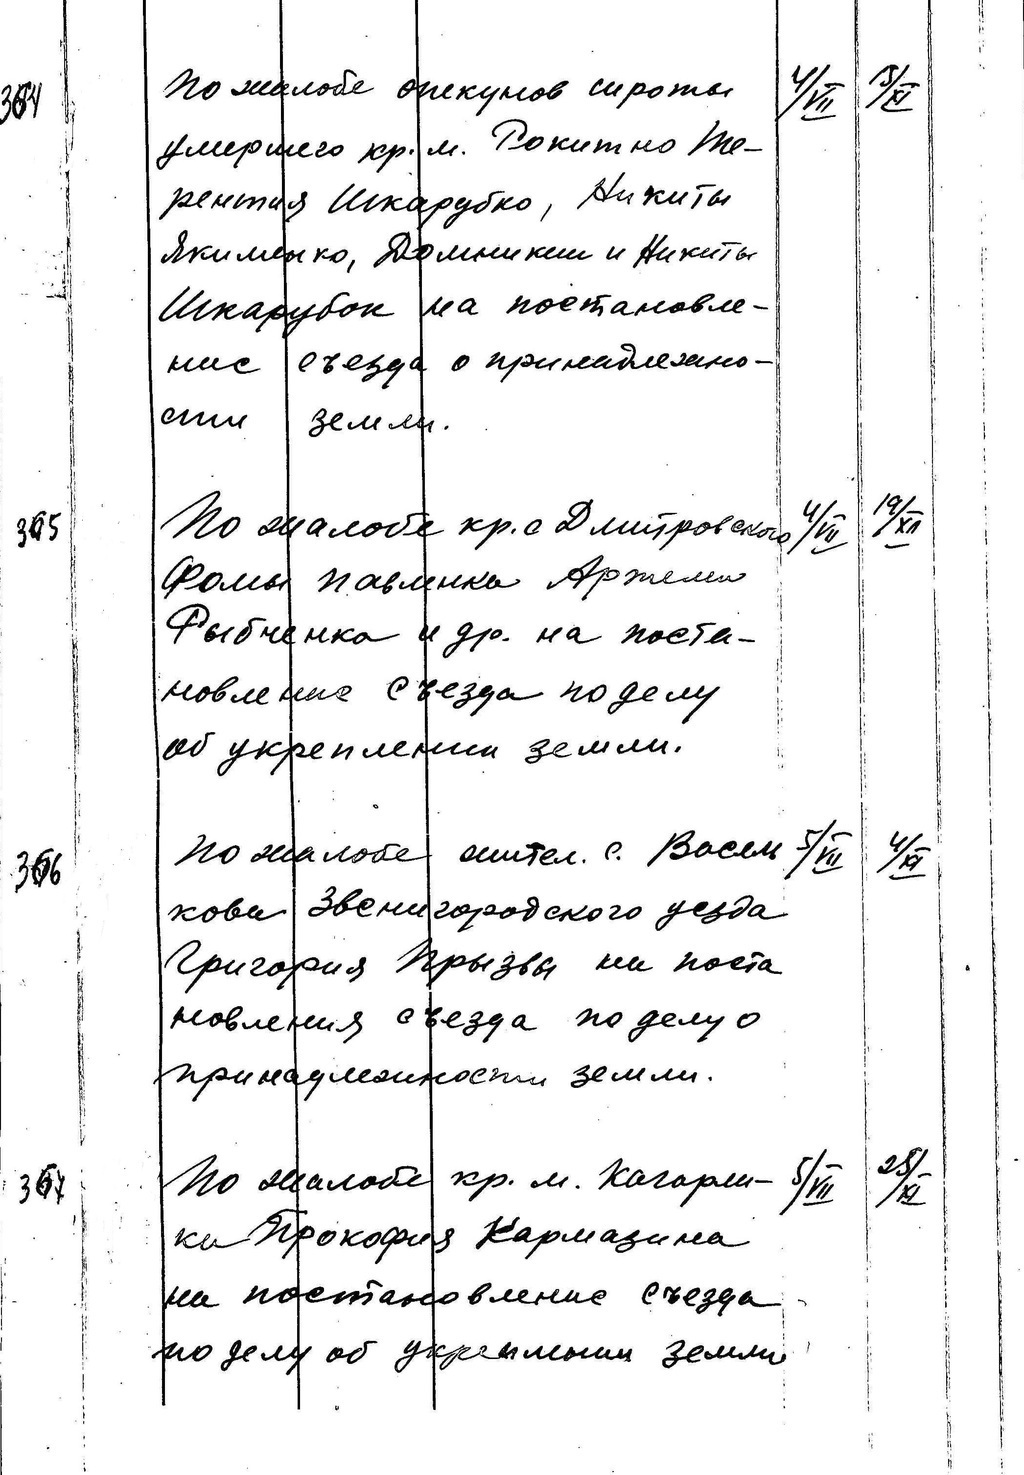 364 По жалобе опекунов сироты 4/VII 15/XI
умершего кр. м. Рокитно Те-
рентия Шкарубко, Никиты
Якименко, Домникии и Никиты
Шкарубок на постановле-
ние съезда о принадлежно-
сти земли.
365 По жалобе кр. с Дмитровского 4/VII 19/XII
Фомы Павленка Артема
Рыбченка и др. на поста-
новление съезда по делу
об укреплении земли.
366 По жалобе жител. с. Василь 5/VII 4/XI
кова Звенигородского уезда
Григория Прызвы на поста
новления съезда по делу о
принадлежности земли.
367 По жалобе кр. м. Кагарлы- 5/VII 25/XI
ка Прокофия Кармазина
на постановление съезда
по делу об укреплении земли